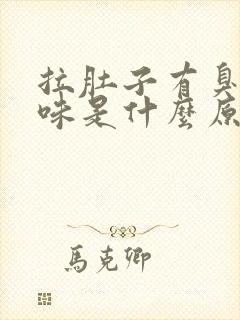 拉肚子有臭
味是什麼原
馬克卿